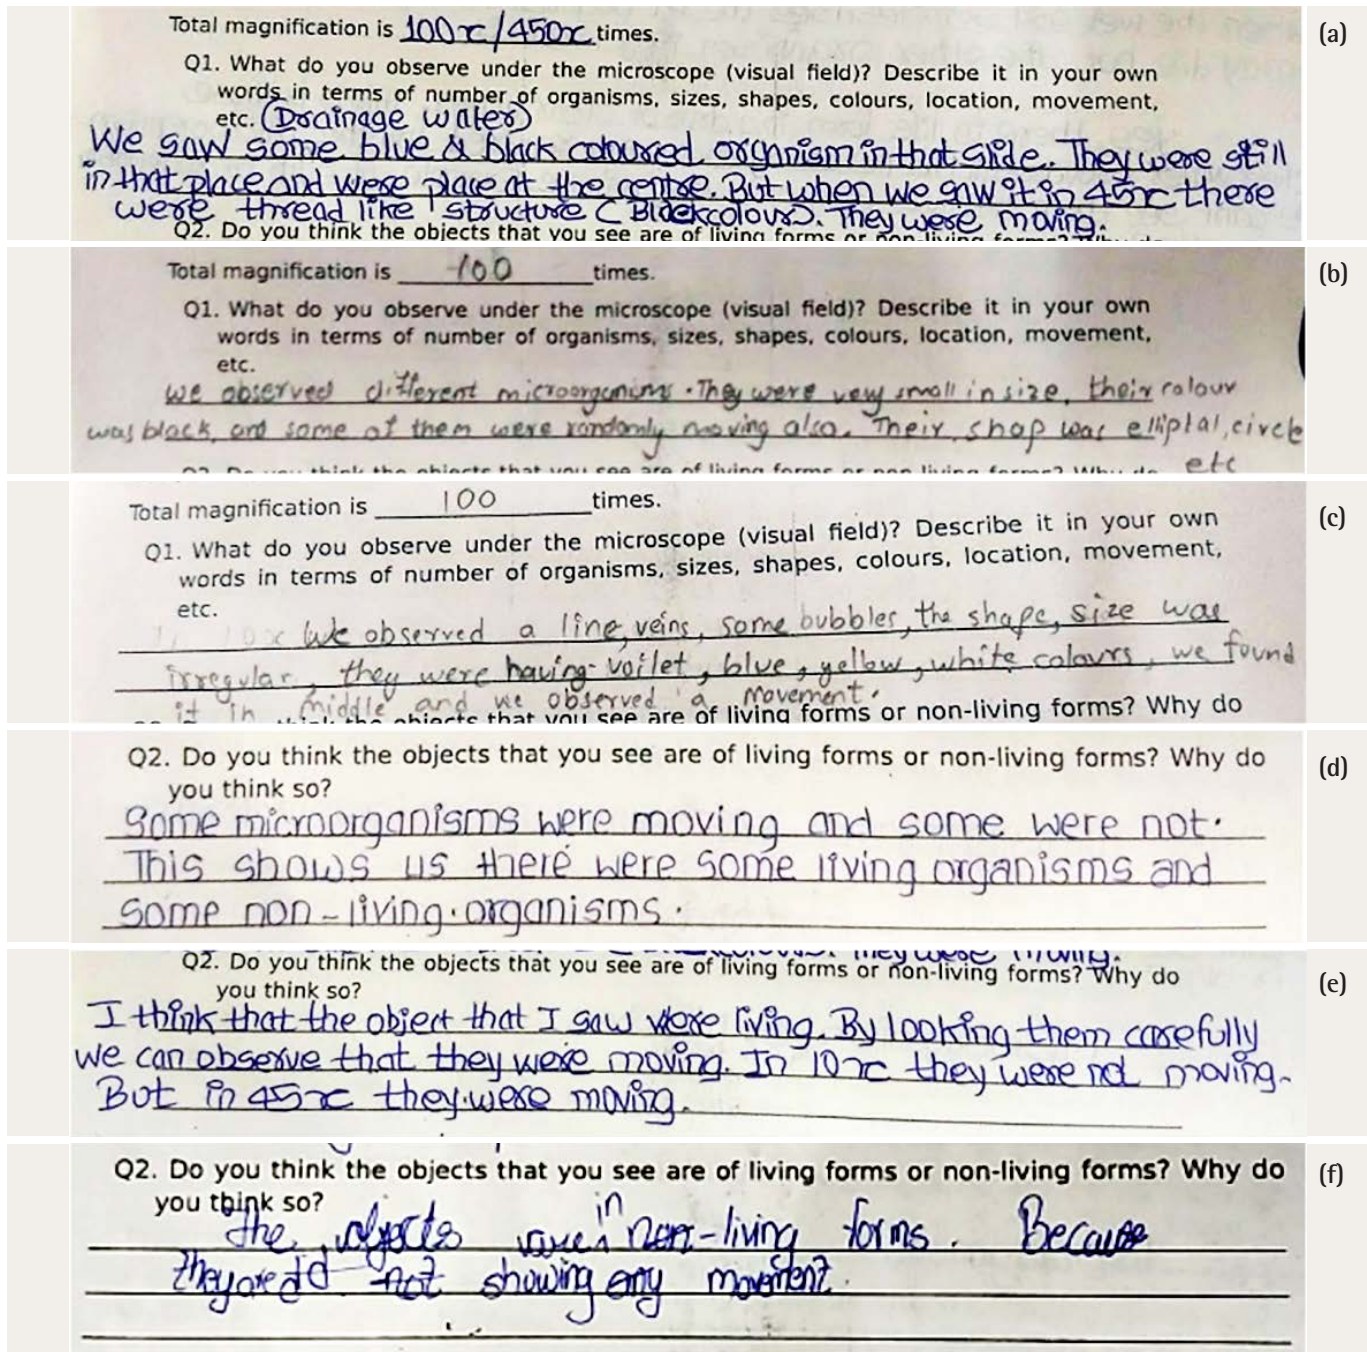 Total magnification is 100x/450x times.
(a)
Q1. What do you observe under the microscope (visual field)? Describe it in your own
words in terms of number of organisms, sizes, shapes, colours, location, movement,
etc. (Drainage water)
We saw some blue & black coloured organism in that slide. They were still
in that place and were place at the centre. But when we saw it in 45x there
were thread like structure ( Blackcolour). They were moving.
Q2. Do you think the objects that you see are of living forms or non-living forms? Why do
Total magnification is 100 times.
(b)
Q1. What do you observe under the microscope (visual field)? Describe it in your own
words in terms of number of organisms, sizes, shapes, colours, location, movement,
etc.
we observed different microorganims. They were very small in size, their colour
was black, and some of them were randomly moving also. Their shap was elliptal, circle
etc
Q2. Do you think the objects that you see are of living forms or non living forms? Why do
Total magnification is 100 times.
(c)
Q1. What do you observe under the microscope (visual field)? Describe it in your own
words in terms of number of organisms, sizes, shapes, colours, location, movement,
etc.
We observed a line, veins, some bubbles, the shape, size was
irregular, they were having voilet, blue, yellow, white colours, we found
it in middle and we observed a movement.
think the objects that you see are of living forms or non-living forms? Why do
Q2. Do you think the objects that you see are of living forms or non-living forms? Why do
(d)
you think so?
Some microorganisms were moving and some were not.
This shows us there were some living organisms and
some non-living.organisms.
They were moving.
Q2. Do you think the objects that you see are of living forms or non-living forms? Why do
(e)
you think so?
I think that the object that I saw were living. By looking them carefully
we can observe that they were moving. In 10x they were not moving.
But in 45x they were moving.
Q2. Do you think the objects that you see are of living forms or non-living forms? Why do
(f)
you think so?
the objects were in non-living forms. Because
they are not showing any movement.